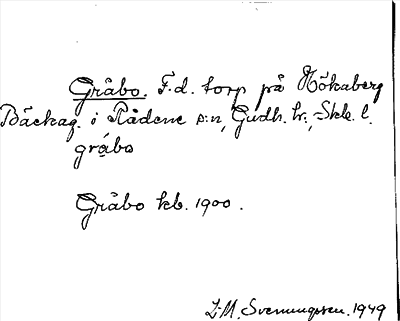 Gråbo. F.d. torp på Hökaberg
Bäckag. i Rådene s:n, Gudh. hr., Skb. l.
gråbo
Gråbo kb. 1900.
I.-M. Svenungsson. 1949